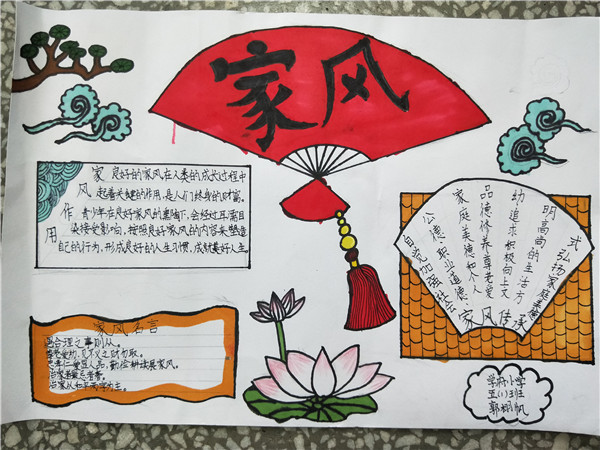 家风
家风作用
良好的家风在人类的成长过程中
起着关键的作用,是人们终身的财富。
青少年在良好家风的熏陶下,会经过耳濡目
染接受影响,按照良好家风的内容来塑造
自己的行为,形成良好的人生习惯,成就美好人生。
自觉加强社会
公德职业道德
家庭美德和个人
品德修养尊老爱
幼追求积极向上文
明高尚的生活方
式弘扬家庭美德
家风传承
家风名言
遇合理之事则从。
不义之财勿取。
勤俭耕读
学府小学
五(1)班